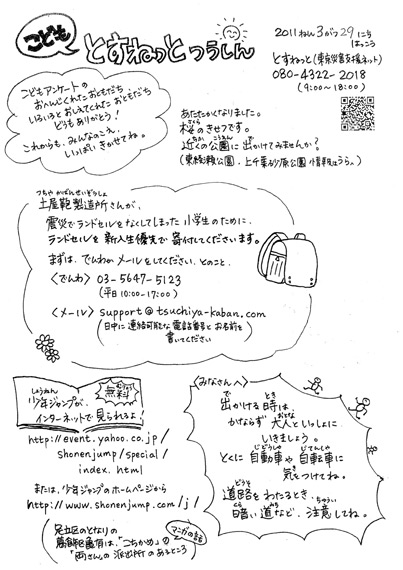 こども
とすねっとつうしん
2011ねん3がつ29にち
はっこう
とすねっと(東京災害支援ネット)
080-4322-2018
(9:00~18:00)
こどもアンケートの
おへんじくれたおともだち
いろいろとおしえてくれたおともだち
どうもありがとう!
これからも、みんなのこえ、
いっぱいきかせてね。
あたたかくなりました。
桜のきせつです。
近くの公園に出かけてみませんか?
(東綾瀬公園・上千葉砂原公園 情報はうらへ)
つちや かばんせいぞうしょ
土屋鞄製造所さんが、
震災でランドセルをなくしてしまった小学生のために、
ランドセルを新入生優先で寄付してくださいます。
まずは、でんわかメールをしてください、とのこと。
<でんわ> 03-5647-5123
(平日10:00-17:00)
<メール> support@tsuchiya-kaban.com
(日中に連絡可能な電話番号とお名前を
書いてください)
しょうねん
少年ジャンプが、
無料
インターネットで見られるよ!
http://event.yahoo.co.jp/
shonenjump/special/
index.html
または、少年ジャンプのホームページから
http://www.shonenjump.com/j/
(足立区のとなりの
葛飾区亀有は、「こちかめ」の
「両さん」の派出所のあるところ)
マンガの話
<みなさんへ>
出かける時は、
かならず大人といっしょに
いきましょう。
とくに自動車や自転車に
気をつけてね。
道路をわたるとき、
暗い道など、注意してね。